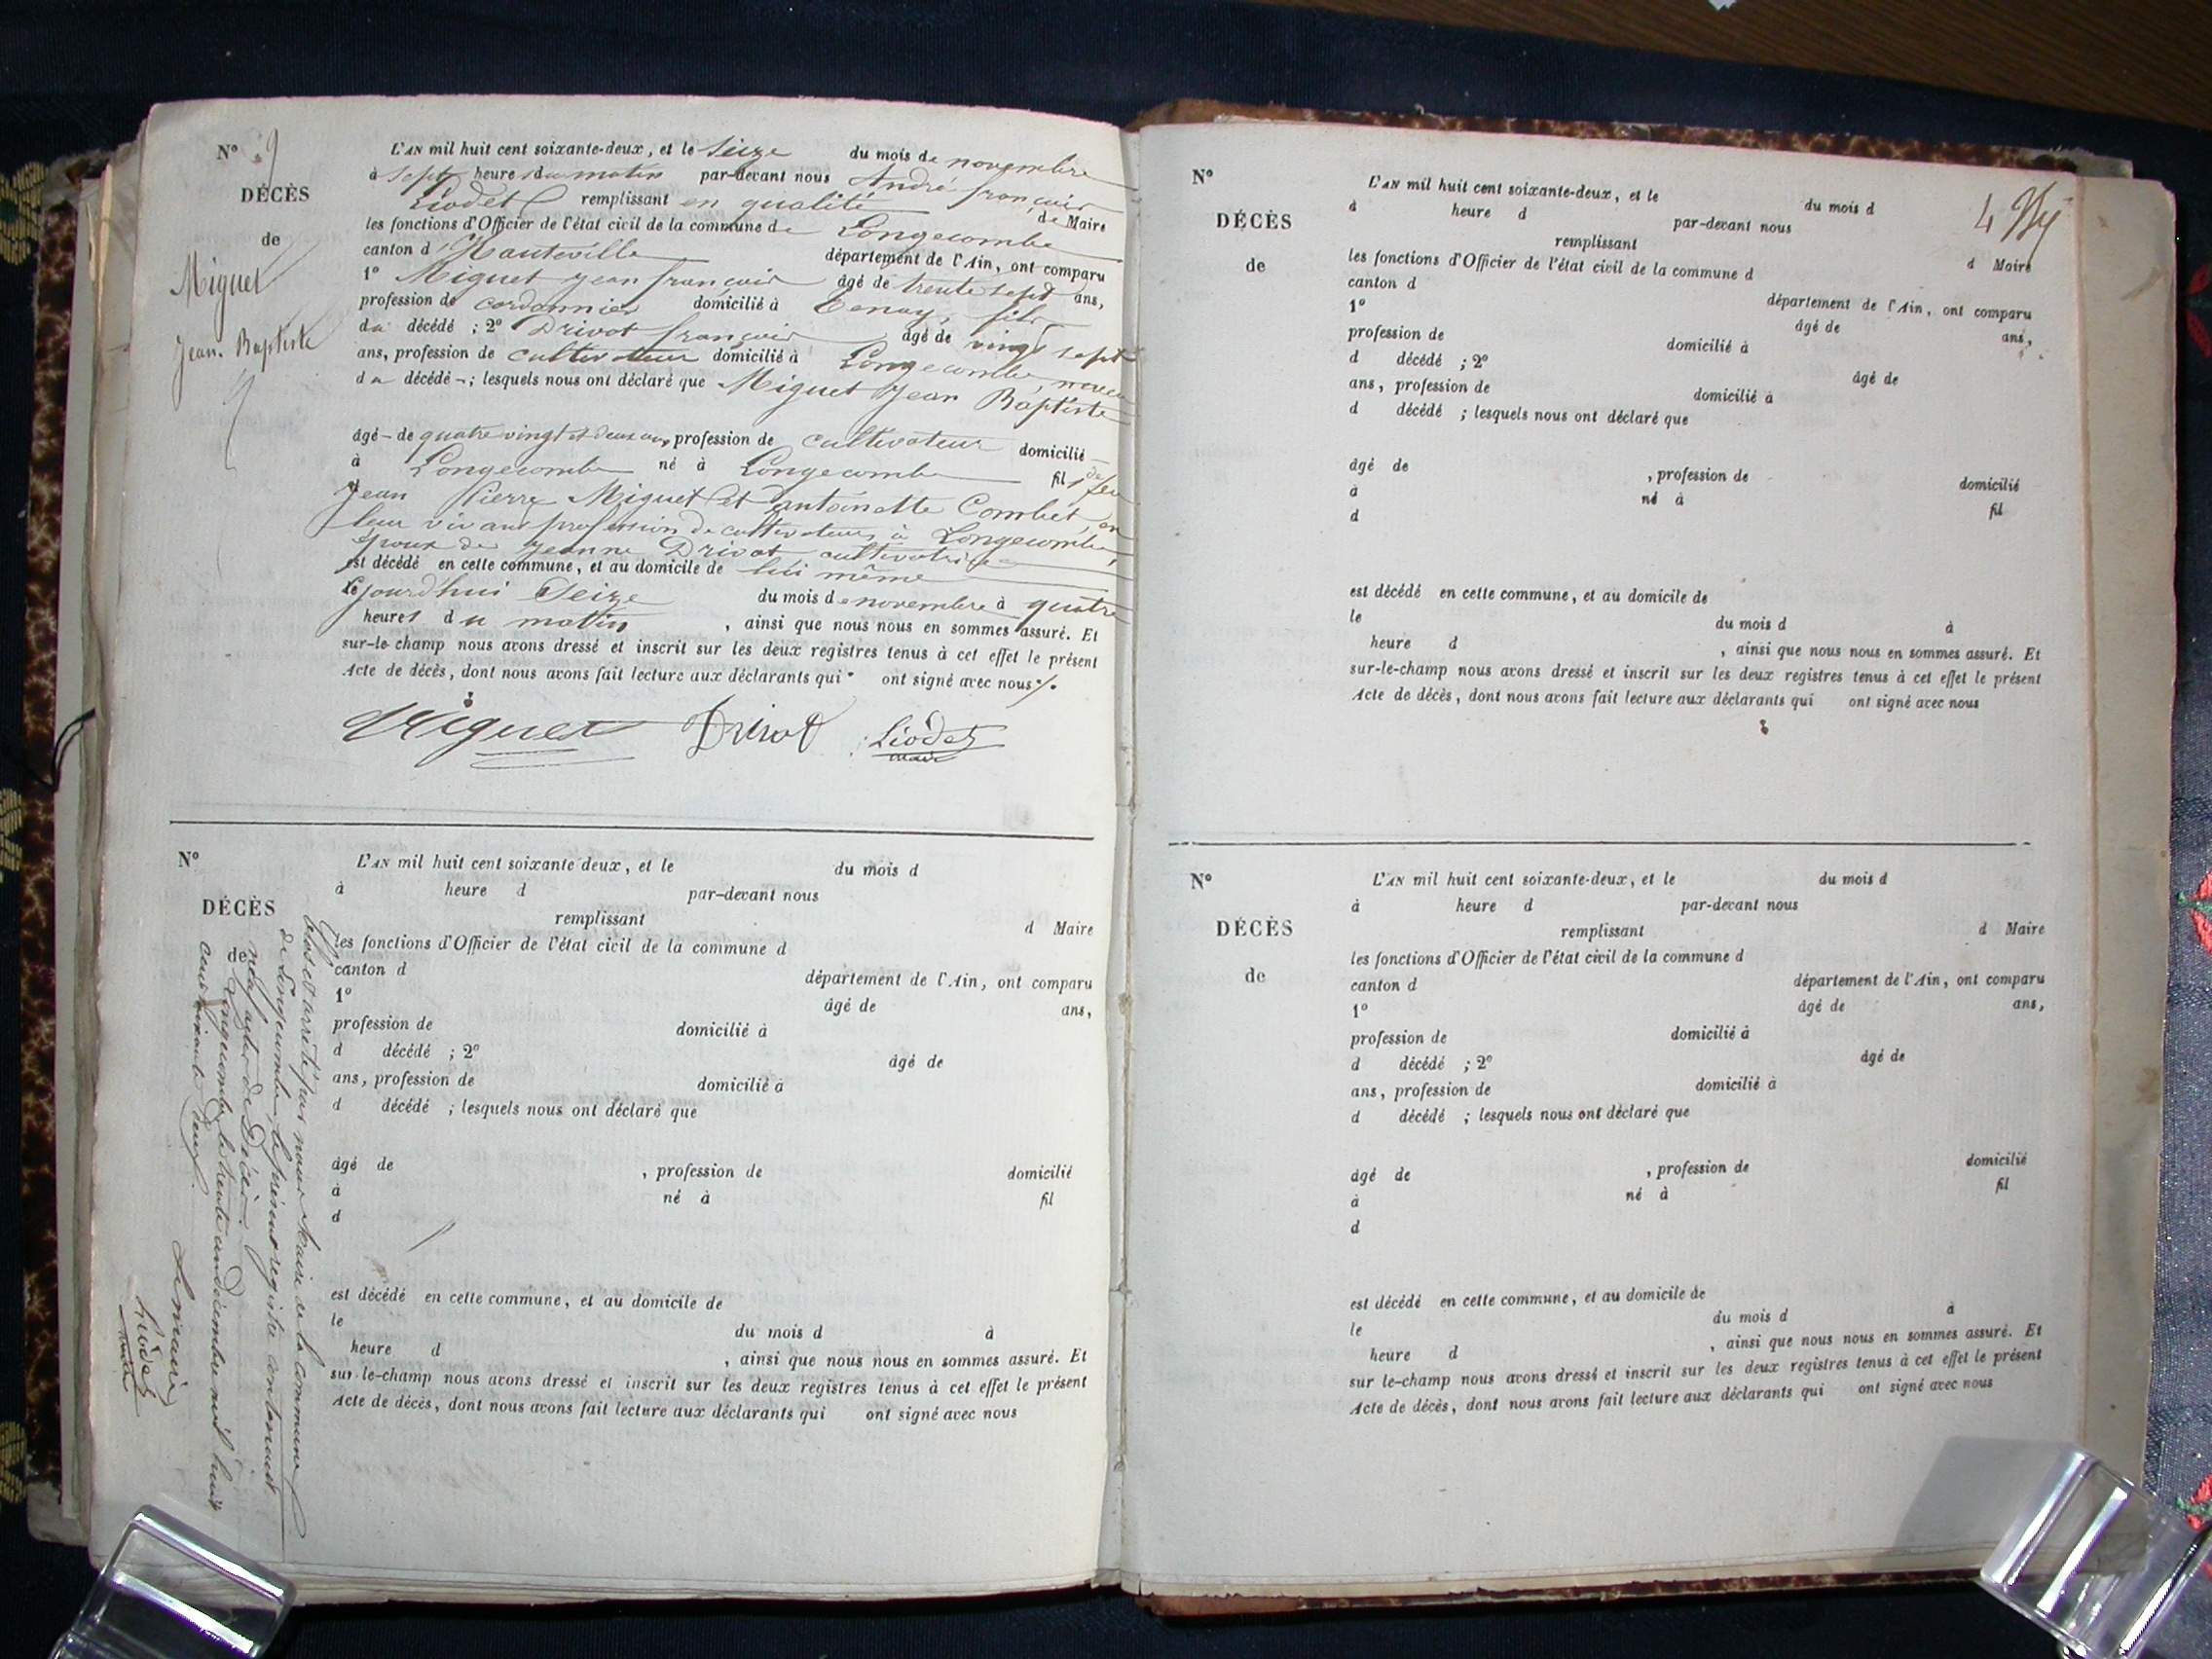 N° 9
DÉCÈS
de
Miguet
Jean Baptiste
L'AN mil huit cent soixante-deux, et le seize du mois de novembre
à sept heures du matin par-devant nous André françois
Liodet remplissant en qualité de Maire
les fonctions d'Officier de l'état civil de la commune de Longecombe
canton d'Hauteville département de l'Ain, ont comparu
1° Miguet Jean françois âgé de trente sept ans,
profession de cordonnier domicilié à Tenay, fils
du décédé ; 2° Drivot françois âgé de vingt sept
ans, profession de cultivateur domicilié à Longecombe, neveu
du décédé ; lesquels nous ont déclaré que Miguet Jean Baptiste
âgé de quatre vingt et deux ans, profession de cultivateur domicilié
à Longecombe né à Longecombe fils de feu
Jean Pierre Miguet et antoinette Combet, en
leur vivant profession de cultivateurs à Longecombe,
époux de Jeanne Drivot cultivatrice
est décédé en cette commune, et au domicile de lui même
le jourd'hui Seize du mois de novembre à quatre
heures du matin, ainsi que nous nous en sommes assuré. Et
sur-le-champ nous avons dressé et inscrit sur les deux registres tenus à cet effet le présent
Acte de décès, dont nous avons fait lecture aux déclarants qui ont signé avec nous ./.
Miguet Drivot Liodet
maire
N°
DÉCÈS
de
L'AN mil huit cent soixante deux, et le du mois d
à heure d par-devant nous
remplissant d Maire
les fonctions d'Officier de l'état civil de la commune d
canton d département de l'Ain, ont comparu
1° âgé de ans,
profession de domicilié à
d décédé ; 2° âgé de
ans, profession de domicilié à
d décédé ; lesquels nous ont déclaré que
âgé de , profession de domicilié
à né à fil
d
est décédé en cette commune, et au domicile de
le du mois d à
heure d , ainsi que nous nous en sommes assuré. Et
sur-le-champ nous avons dressé et inscrit sur les deux registres tenus à cet effet le présent
Acte de décès, dont nous avons fait lecture aux déclarants qui ont signé avec nous
Clos et arrêté par nous Maire de la commune
de Longecombe le présent registre contenant
neuf actes de Décès.
Longecombe le trente un décembre mil huit
cent soixante deux.
Le maire
Liodet
maire
4
N°
DÉCÈS
de
L'AN mil huit cent soixante-deux, et le du mois d
à heure d par-devant nous
remplissant d Maire
les fonctions d'Officier de l'état civil de la commune d
canton d département de l'Ain, ont comparu
1° âgé de ans,
profession de domicilié à
d décédé ; 2° âgé de
ans, profession de domicilié à
d décédé ; lesquels nous ont déclaré que
âgé de , profession de domicilié
à né à fil
d
est décédé en cette commune, et au domicile de
le du mois d à
heure d , ainsi que nous nous en sommes assuré. Et
sur-le-champ nous avons dressé et inscrit sur les deux registres tenus à cet effet le présent
Acte de décès, dont nous avons fait lecture aux déclarants qui ont signé avec nous
N°
DÉCÈS
de
L'AN mil huit cent soixante-deux, et le du mois d
à heure d par-devant nous
remplissant d Maire
les fonctions d'Officier de l'état civil de la commune d
canton d département de l'Ain, ont comparu
1° âgé de ans,
profession de domicilié à
d décédé ; 2° âgé de
ans, profession de domicilié à
d décédé ; lesquels nous ont déclaré que
âgé de , profession de domicilié
à né à fil
d
est décédé en cette commune, et au domicile de
le du mois d à
heure d , ainsi que nous nous en sommes assuré. Et
sur le-champ nous avons dressé et inscrit sur les deux registres tenus à cet effet le présent
Acte de décès, dont nous avons fait lecture aux déclarants qui ont signé avec nous